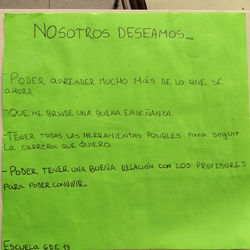 NOSOTROS DESEAMOS...
-PODER APRENDER MUCHO MÁS DE LO QUE SÉ
AHORA.
-QUE ME BRINDE UNA BUENA ENSEÑANZA.
-TENER TODAS LAS HERRAMIENTAS POSIBLES PARA SEGUIR
LA CARRERA QUE QUIERO.
-PODER TENER UNA BUENA RELACIÓN CON LOS PROFESORES
PARA PODER CONVIVIR.
ESCUELA 6DE 13